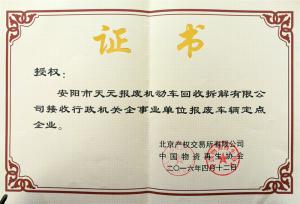 证书
授权：
安阳市天元报废机动车回收拆解有限公
司接收行政机关企事业单位报废车辆定点
企业。
北京产权交易所有限公司
中国物资再生协会
二〇一六年四月十二日